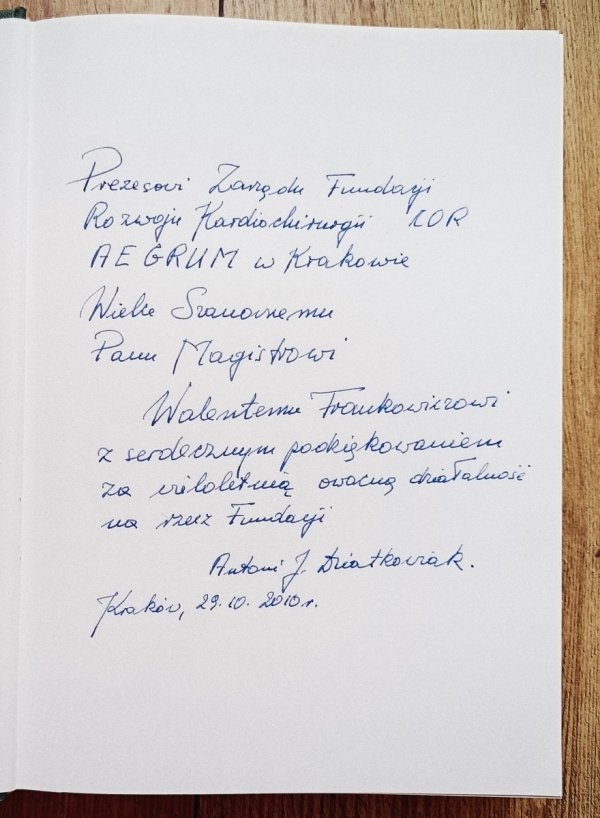 Prezesowi Zarządu Fundacji
Rozwoju Kardiochirurgii COR
AEGRUM w Krakowie
Wielce Szanownemu
Panu Magistrowi
Walentemu Frankowiczowi
z serdecznym podziękowaniem
za wieloletnią owocną działalność
na rzecz Fundacji
Antoni J. Dziatkowiak.
Kraków, 29.10.2010r.